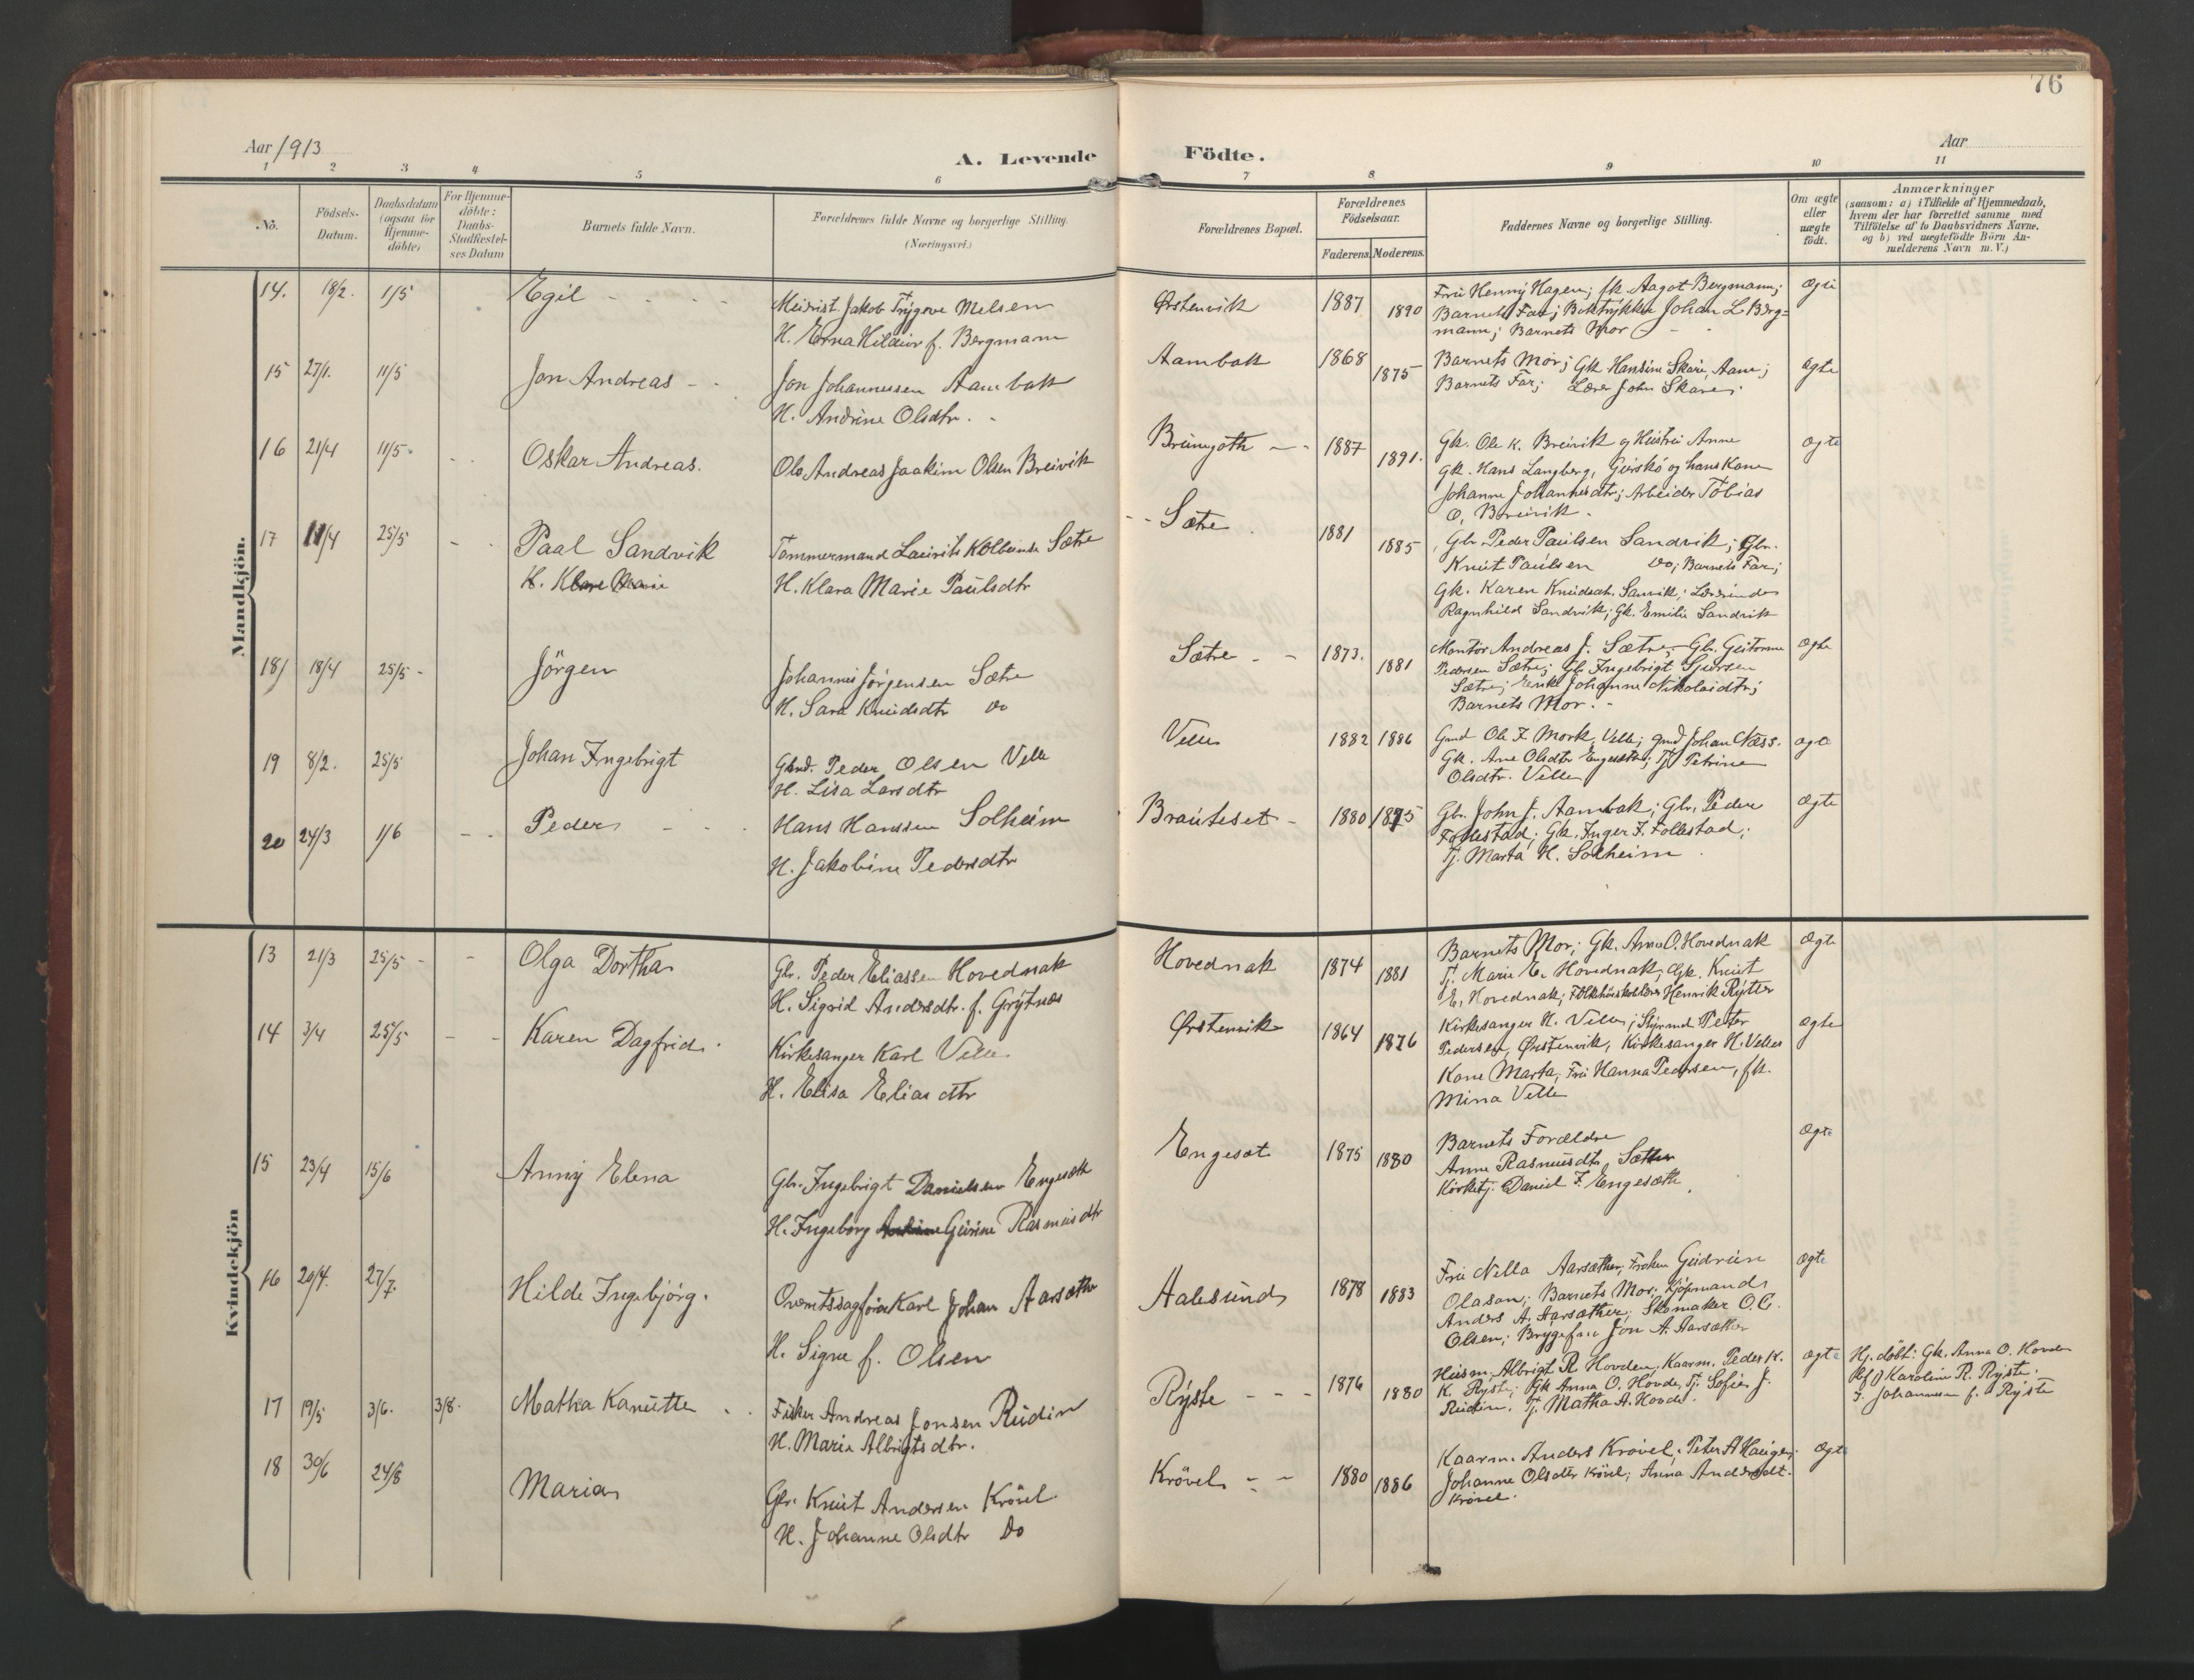 76
Aar 1913
A. Levende Födte.
Aar
1 2 3 4 5 6 7 8 9 10 11
No.
Födsels-Datum.
Daabsdatum (ogsaa for Hjemme-döbte)
For Hjemme-döbte: Daabs-Stadfæstel-ses Datum
Barnets fulde Navn.
Forældrenes fulde Navne og borgerlige Stilling.
(Næringsvei.)
Forældrenes Bopæl.
Forældrenes Födselsaar.
Faderens. Moderens.
Faddernes Navne og borgerlige Stilling.
Om ægte eller uægte födt.
Anmærkninger
(saasom: a) i Tilfælde af Hjemmedaab,
hvem der har forrettet samme med
Tilföielse af to Daabsvidners Navne,
og b) ved uægtefödte Börn An-
melderens Navn m. V.)
Mandkjön.
14. 18/2. 1/5 Egil
Meierist Jakob Trygve Melsen
H. Erna Hildur f. Bergmann
Ørstenvik 1887 1890
Fru Henny Hagen; frk. Aagot Bergmann;
Barnets Far; Boktrykker Johan L Berg=
mann; Barnets Mor
ægte
15 27/1. 11/5 Jon Andreas
Jon Johannessen Aambakk
H. Andrine Olsdtr.
Aambakk 1868 1875
Barnets Mor; Gk Hansine Skare, Aam;
Barnets Far; Lærer John Skare;
ægte
16 21/4 11/5. Oskar Andreas.
Ole Andreas Joakim Olsen Breivik
1887 1891.
Gk. Ole K. Breivik og Hustru Anne
Gk. Hans Langberg, Gurskö og hans Kone
Johanne Johannesdtr; Arbeider Tobias
O. Breivik.
ægte
17 11/4 25/5 Paal Sandvik
Tømmermand Laurits Kolbeinsen Sætre
H. Klara Marie Paulsdtr
Sætre 1881 1885
Gbr. Peder Paulsen Sandvik; Gbr.
Knut Paulsen Do; Barnets Far;
Gk. Karen Knudsdtr. Sanvik; Lærerinde
Ragnhild Sandvik; Gk. Emilie Sandvik
18 18/4 25/5 Jörgen
Johannes Jørgensen Sætre
H. Sara Knudsdtr Do
Sætre 1873. 1881
Montør Andreas J. Sætre; Gbr. Guttorm
Pedersen Sætre; Gbr Ingebrigt Sjursen
Sætre; Enke Johanne Nikolaidtr;
Barnets Mor.
ægte
19 8/2. 25/5 Johan Ingebrigt
Gbrd. Peder Olsen Velle
H. Lisa Larsdtr
Velle 1882 1886
Gmd Ole F. Mork, Velle; gmd Johan Næss.
Gk. Ane Olsdtr Engesæth; Tj. Petrine
Olsdtr. Velle
ægte
20 24/3 1/6 Peder
Hans Hanssen Solheim
H. Jakobine Pedersdtr
Brauteset 1880 1875
Gbr. John J. Aambak; Gbr. Peder
Follestad; Gk. Inger F. Follestad;
Tj. Marta H. Solheim
ægte
Kvindekjön
13 21/3 25/5 Olga Dorthea
Gbr. Peder Eliassen Hovednak
H. Sigrid Andersdtr. f. Grytnes
Hovednak 1874 1881
Barnets Mor; Gk. Anne O. Hovednak
Tj. Marie E. Hovednak; Gk. Knut
E. Hovednak; Folkhöiskolelærer Henrik Rytter
ægte
14 3/4 25/5 Karen Dagfrid.
Kirkesanger Karl Velle
H. Elisa Elias dtr
Ørstenvik 1864 1876
Kirkesanger H. Velle; Styrmd Peter
Pedersen, Ørstenvik, Kirkesanger H. Velles
Kone Marta; Fru Hanna Pedersen, frk.
Mina Velle
ægte
15 23/4 15/6 Anny Elena
Gbr. Ingebrigt Danielsen Engesæth
H. Ingeborg Gurine Rasmusdtr
Engeset 1875 1880
Barnets Forældre
Anne Rasmusdtr Sætre
Kirketj. Daniel F. Engesæth
ægte
16 20/4. 27/7. Hilde Ingebjörg.
Overretssagfører Karl Johan Aarsæther
H. Signe f. Olsen
Aalesund 1878 1883
Fru Nella Aarsæther; Frøken Gudrun
Olasan; Barnets Mor; Kjöpmand
Anders A. Aarsæther; Skomaker O. C.
Olsen; Jon A. Aarsæther
ægte
17 19/5 3/6. 3/8. Mathea Kanutte
Fisker Andreas Jonsen Rudin
H. Maria Albrigtsdtr.
Ryste 1876 1880
Husm. Albrigt R Hovden; Kaarm. Peder K.
K. Ryste; Gk Anna O. Hovde, Tj. Sofie J.
Rudin. Tj. Mathea A. Hovde.
ægte
Hj. döbt: Gk. Anna O. Hovde
Karoline R. Ryste.
J. Johannesen f. Ryste
18 30/6 24/8 Maria
Gbr. Knut Andersen Krövel
H. Johanne Olsdtr Do
Krövel 1880 1886
Kaarm. Anders Krövel; Peter A Haugen;
Johanne Olsdtr Krövel; Anna Andersdt.
Krövel.
ægte